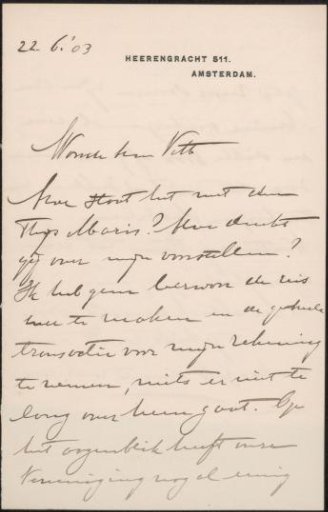 22.6.'03
HEERENGRACHT 511.
AMSTERDAM.
Waarde heer Veth
Hoe staat het met den
Thys Maris? Hoe denkt
gij over mijn voorstellen?
Ik heb geen bezwaar de reis
mee te maken en de geheele
transactie voor mijn rekening
te nemen, mits er niet te
lang over heen gaat. Op
het oogenblik heeft onze
Vereeniging nog al eenig